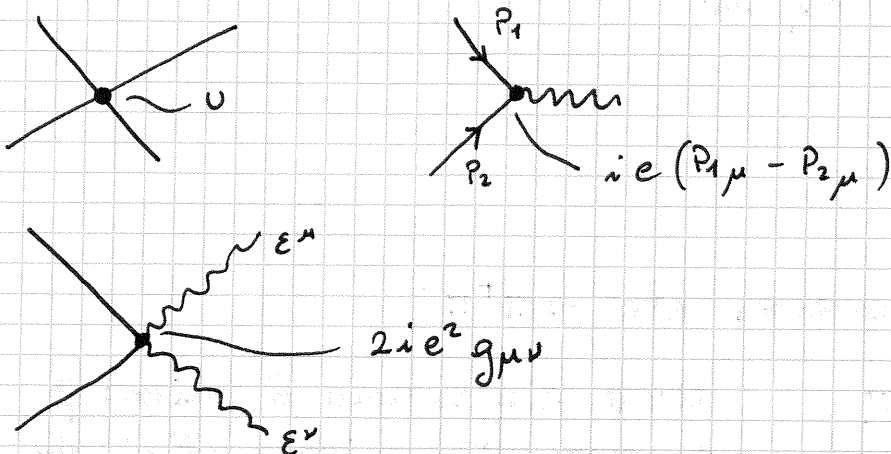 P1
υ
P2
i e (P1μ − P2μ)
εμ
2 i e² gμν
εν